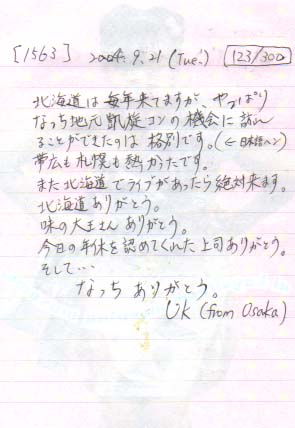 [1563] 2004.9.21 (Tue.) 123/300
北海道は毎年来てますが、やっぱり
なっち地元凱旋コンの機会に訪れ
ることができたのは格別です。(←日本語ヘン)
帯広も札幌も熱かったです。
また北海道でライブがあったら絶対来ます。
北海道ありがとう。
味の大王さんありがとう。
今日の年休を認めてくれた上司ありがとう。
そして…
なっちありがとう。
UK (from Osaka)